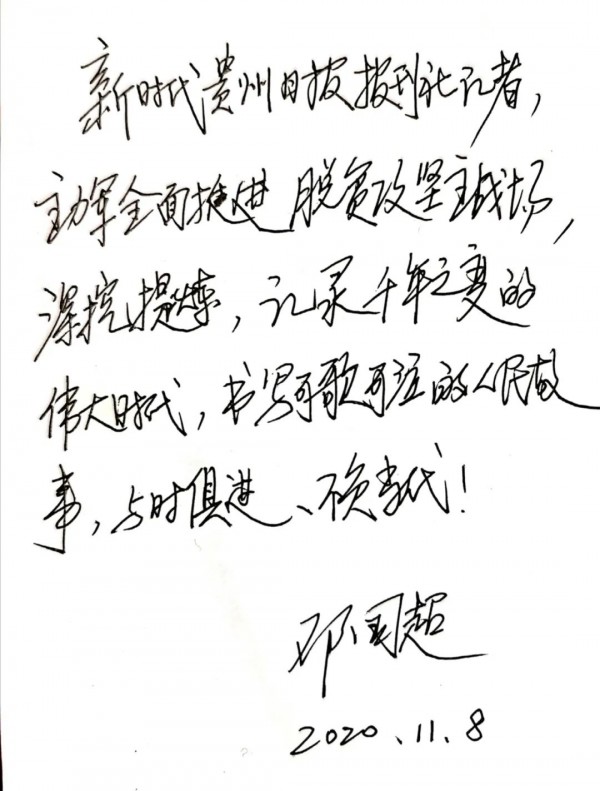 新时代贵州日报报刊社记者，
主动军全面挺进脱贫攻坚主战场，
深挖提炼，记录千年之变的
伟大时代，书写可歌可泣的人民故
事，与时俱进、不负时代！
邓国超
2020.11.8